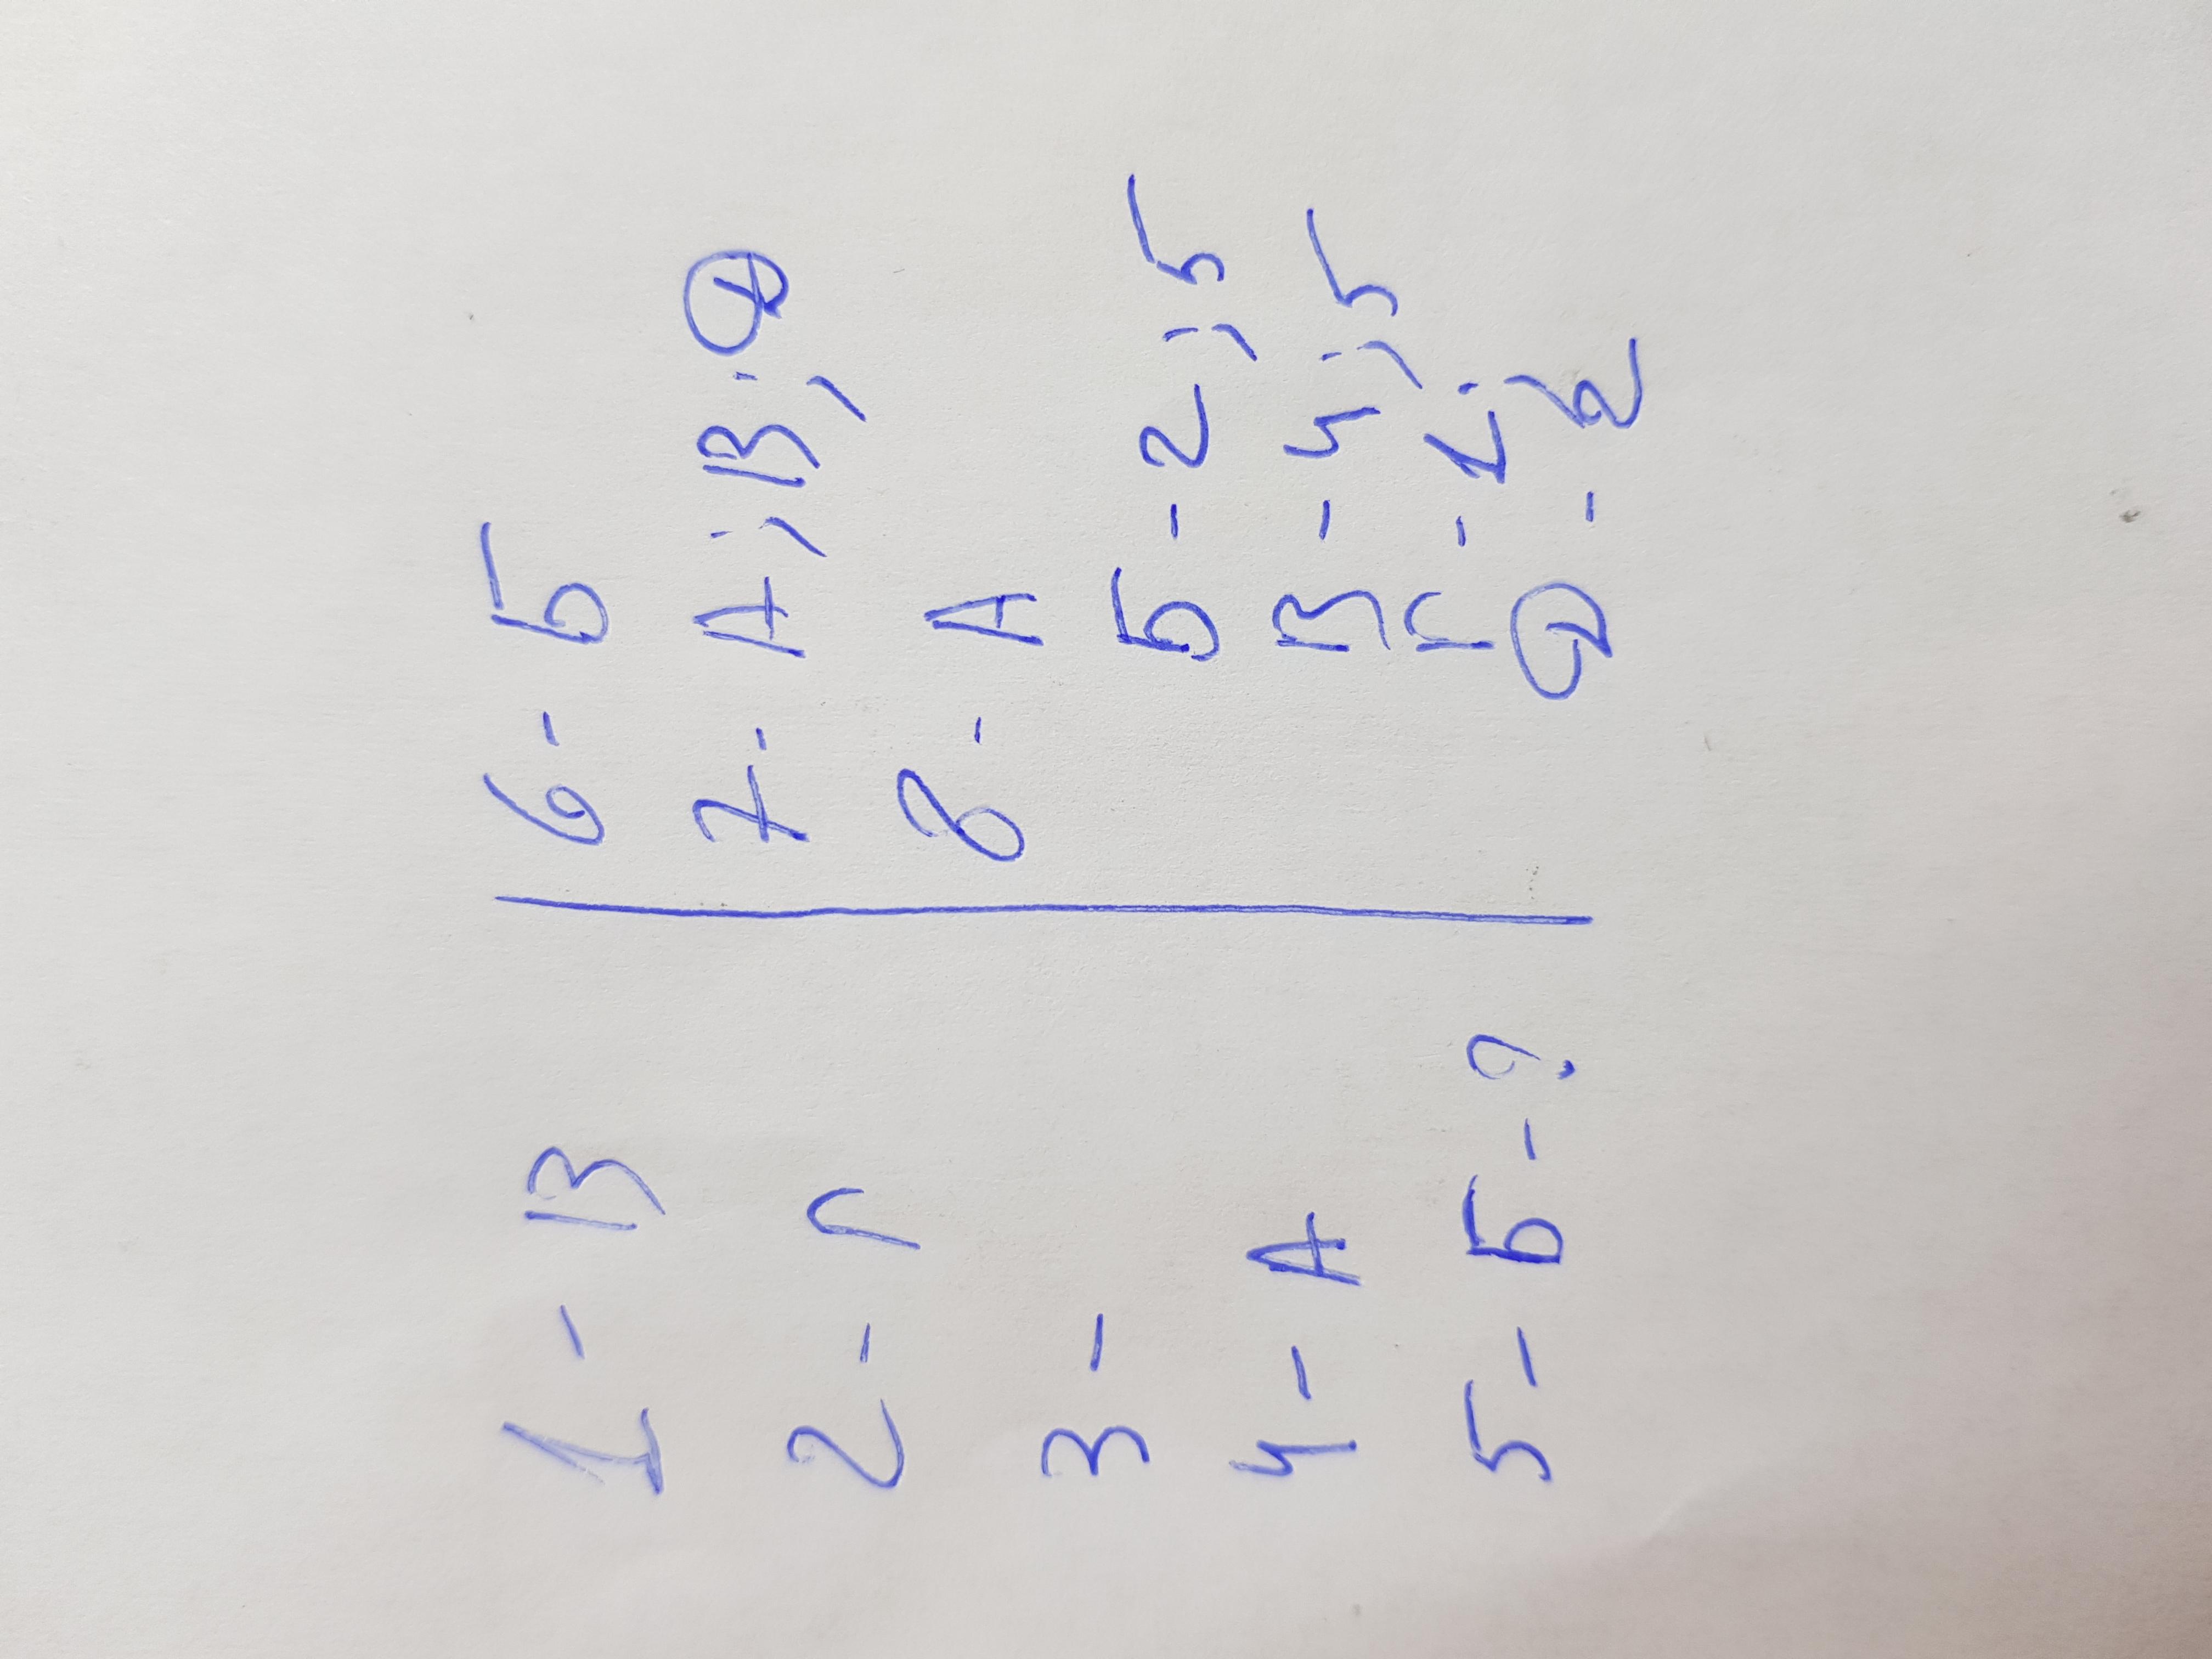 1 - В
2 - Г
3 -
4 - А
5 - Б - ?
6 - Б
7 - А, В,
8 - А
Б - 2, 5
В - 4, 5
Г - 1,
- 2